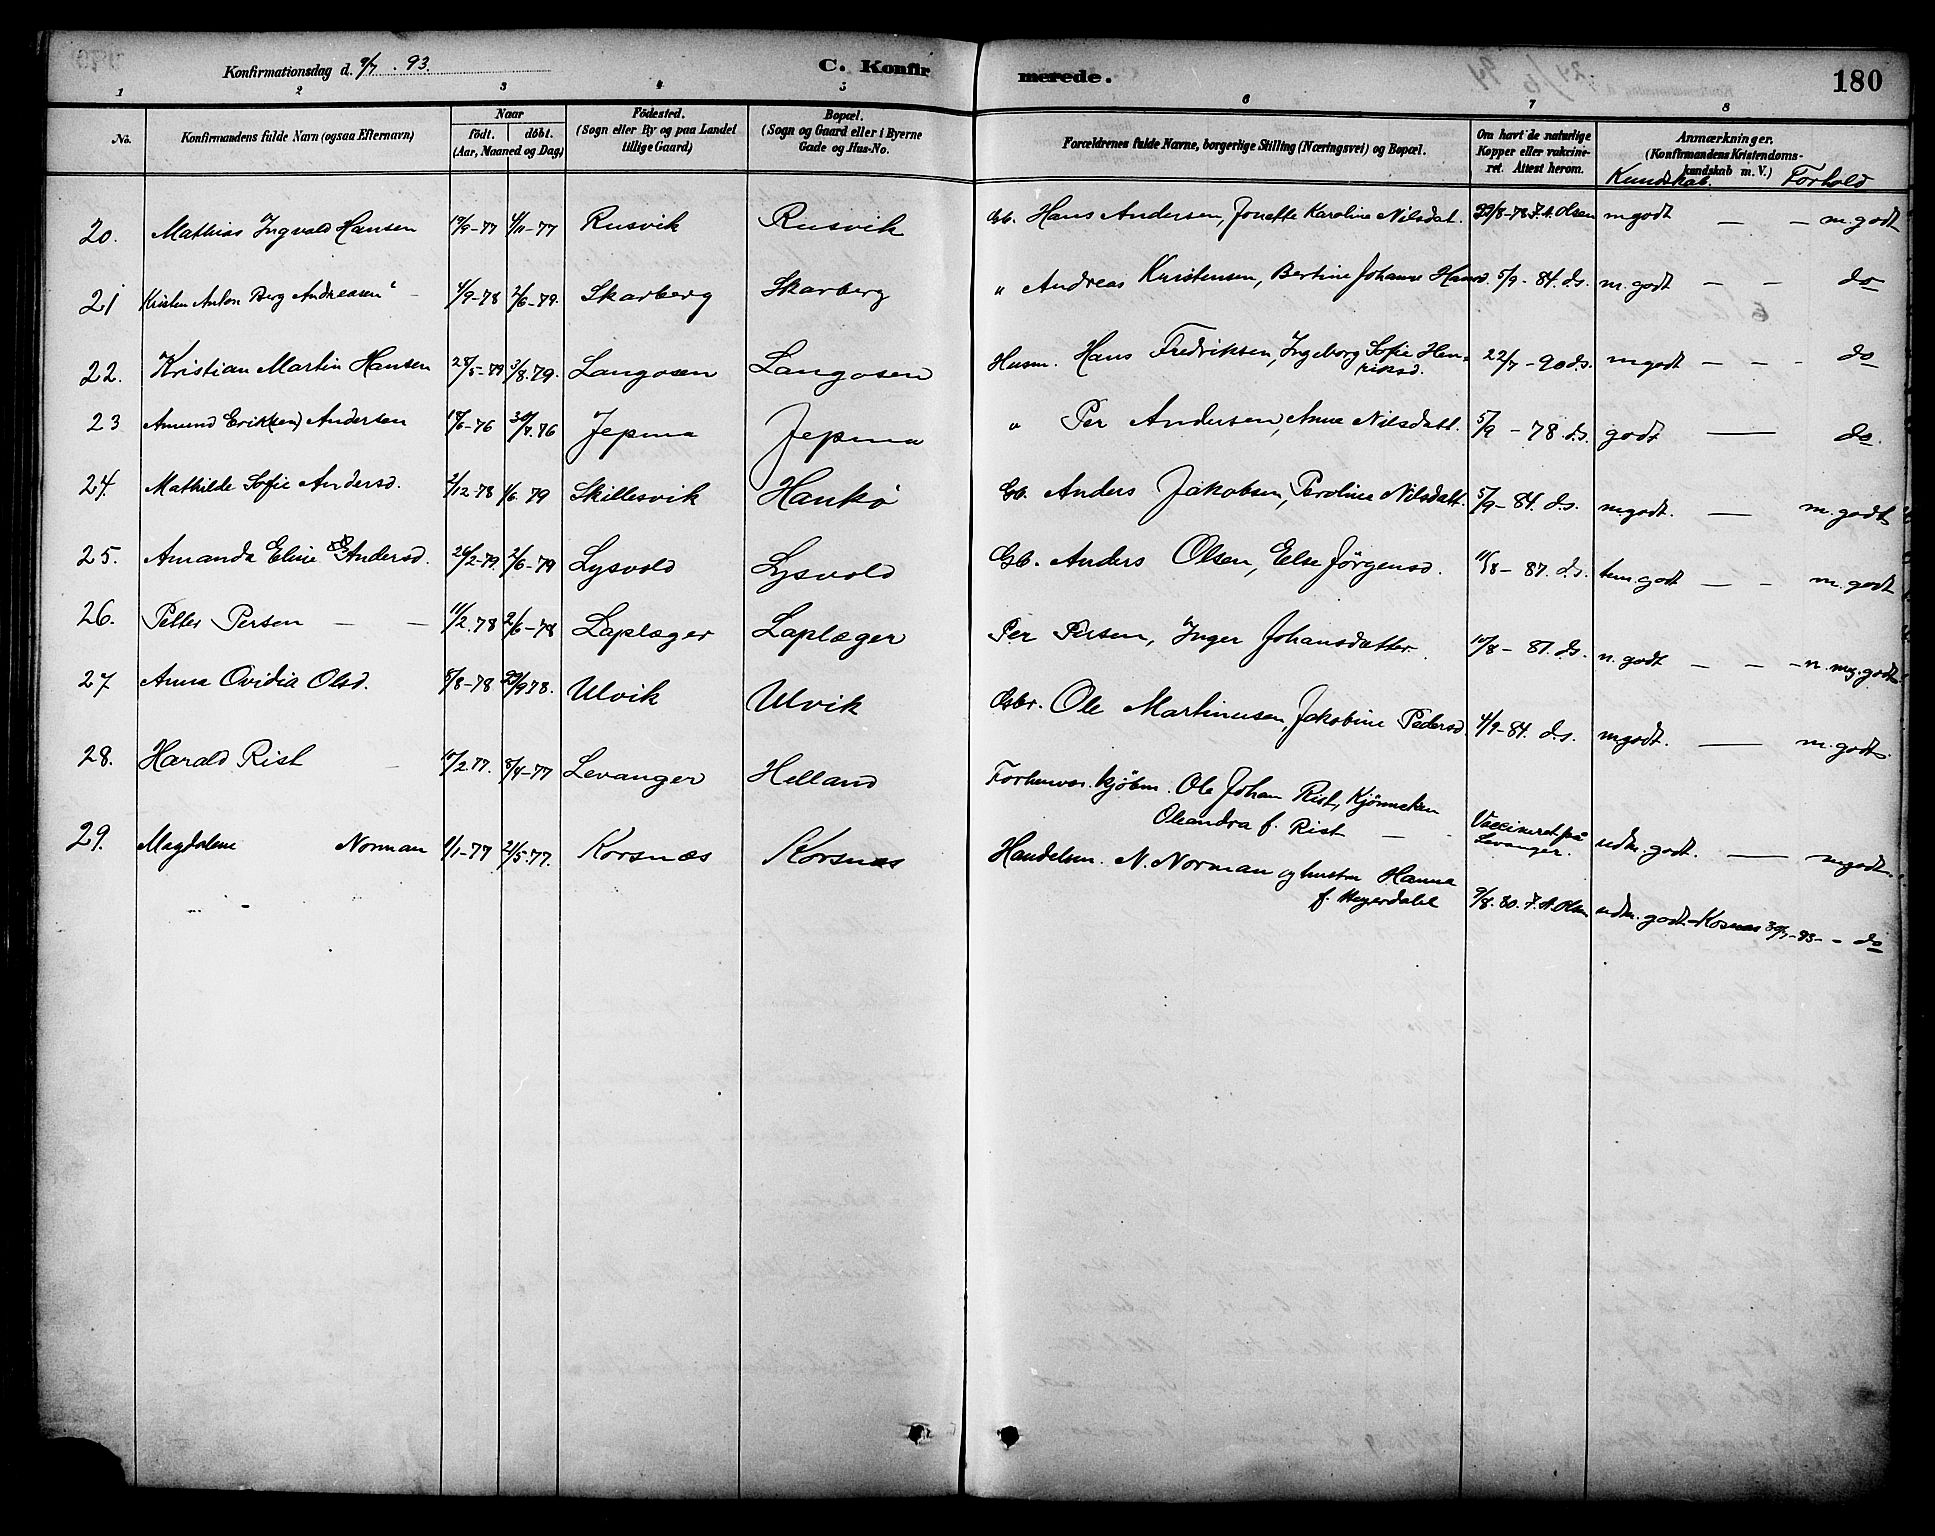 Konfirmationsdag d. 9/7 . 93. C. Konfirmerede. 180
1 2 3 4 5 6 7 8
No. Konfirmandens fulde Navn (ogsaa Efternavn) Naar födt. döbt. (Aar, Maaned og Dag) Födested. (Sogn eller By og paa Landet tillige Gaard) Bopæl. (Sogn og Gaard eller i Byerne Gade og Hus-No. Forældrenes fulde Navne, borgerlige Stilling (Næringsvei) og Bopæl. Om havt de naturlige Kopper eller vaccineret. Attest herom. Anmærkninger. (Konfirmandens Kristendomskundskab m. V.) Kundskab. Forhold
20. Mathias Ingvald Hansen 19/9-77 4/11-77 Rusvik Rusvik Gb. Hans Andersen, Jonette Karoline Nilsdat. 29/8-78 F.A. Olsen m godt — — m. godt
21 Kristen Anton Berg Andreasen 4/9-78 2/6-79. Skarberg Skarberg " Andreas Kristensen, Bertine Johanne Hansd. 5/9-84. d.s. m. godt — — do
22. Kristian Martin Hansen 28/5-79 3/8.79. Langosen Langosen Husm. Hans Fredriksen, Ingeborg Sofie Henriksd. 22/7-90 d.s. m godt — — do
23 Amund Erik(sen) Andersen 18/6-76 30/7.76 Jepma Jepma " Per Andersen, Anna Nilsdatt. 5/9-78 d.s. godt — do.
24. Mathilde Sofie Andersd. 2/12-78 1/6.79 Skillesvik Hankö Gb. Anders Jakobsen, Peroline Nilsdatt. 5/9-84. d.s. m.godt. — m. godt
25. Amanda Elise Andersd. 26/2-79. 2/6-79 Lysvold Lysvold Gb. Anders Olsen, Else Jörgensd. 10/8-87. d.s. tem. godt — — m. godt
26. Petter Persen — — 11/2.78 2/6-78 Laplæger Laplæger Per Persen, Inger Johansdatter. 10/8-87. d.s. n. godt — — n. mg. godt
27 Anna Ovidia Olsd. 8/8-78 29/9 78. Ulvik Ulvik Gbr. Ole Martinusen, Jakobine Pedersd. 4/9-84. d.s. m godt. — m. godt.
28. Harald Rist 10/2 77. 8/4-77 Levanger Helland Forhenvær. kjøbm. Ole Johan Rist, Oleandra f. Rist — Vaccineret på Levanger. udm. godt. — m godt.
29. Magdalene Norman 1/1-77 21/5-77. Korsnæs Korsnæs Handelsm. N. Norman og hustru Hanna f. Heyerdahl 9/8.80. F. A. Olsen udm. godt. - Kosnæs 30/7-93- - do